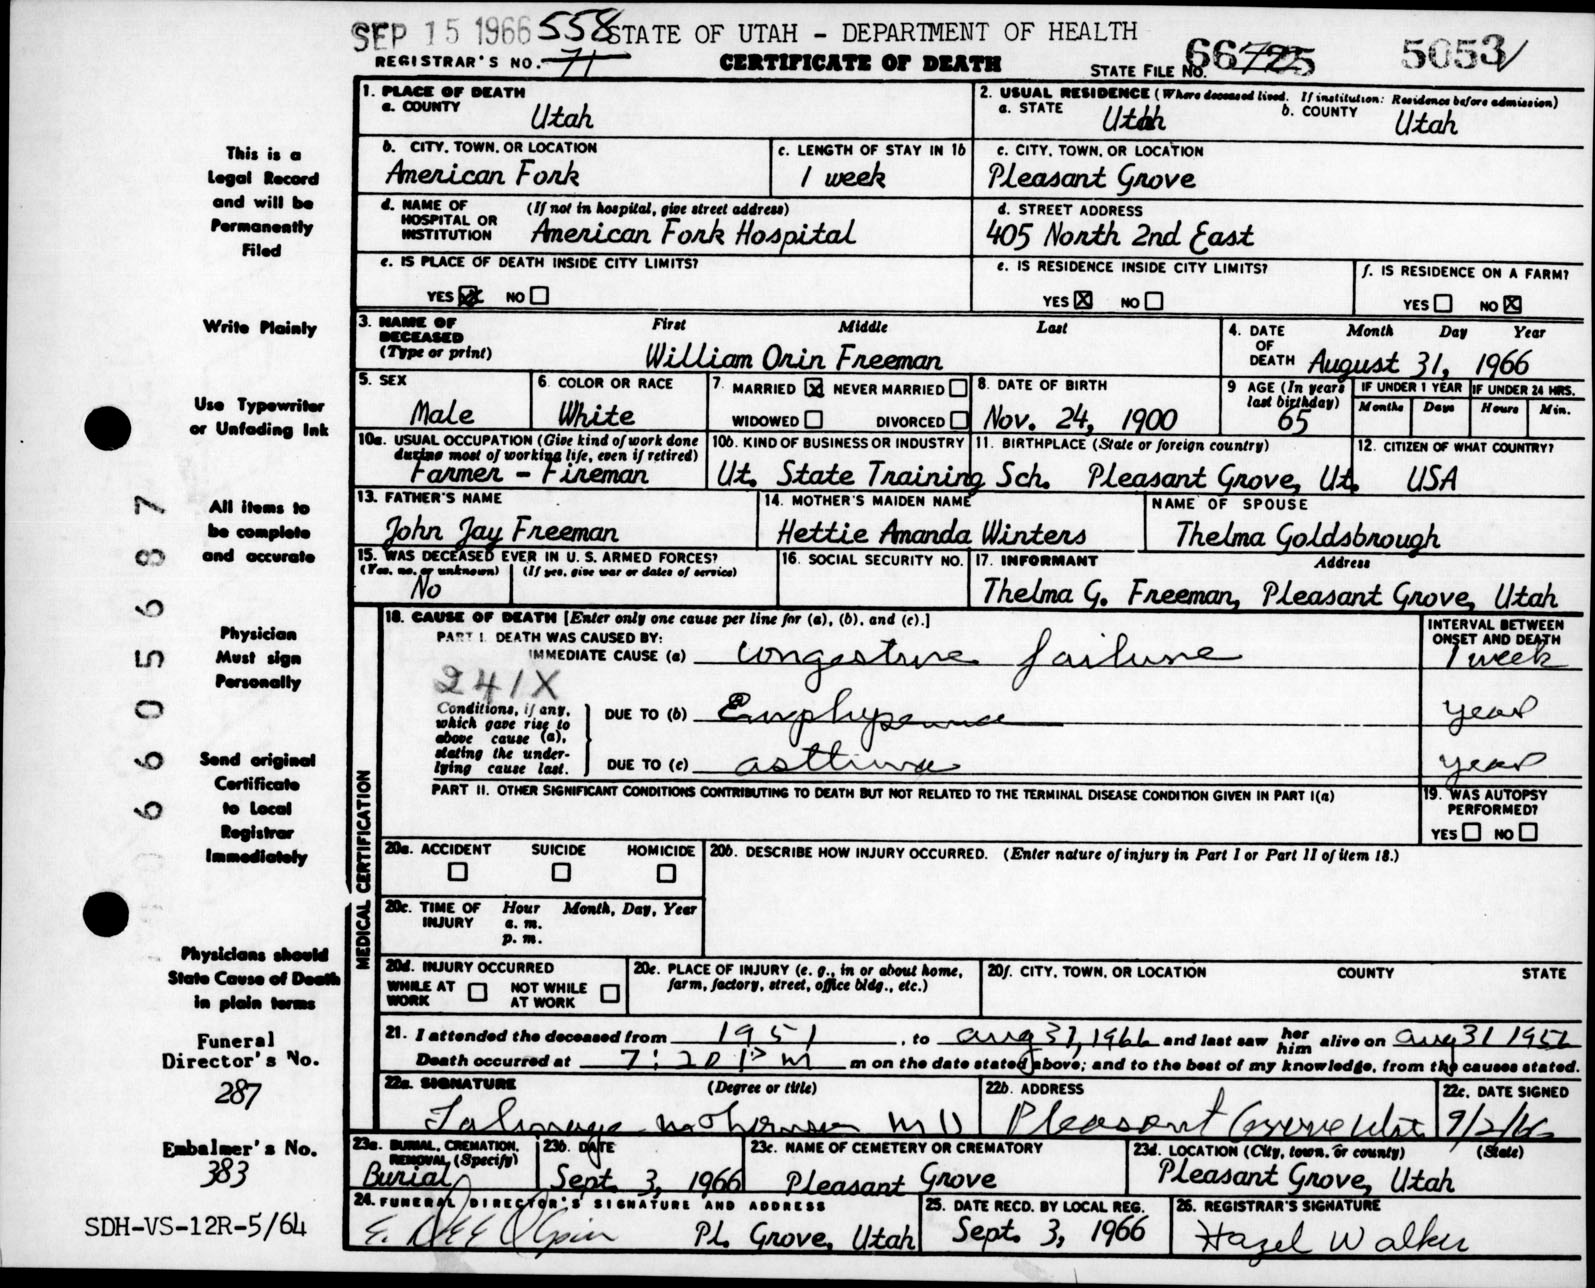 SEP 15 1966 558 STATE OF UTAH - DEPARTMENT OF HEALTH
REGISTRAR'S NO. 71 CERTIFICATE OF DEATH STATE FILE NO. 66 725 5053
1. PLACE OF DEATH
a. COUNTY Utah
2. USUAL RESIDENCE (Where deceased lived. If institution: Residence before admission)
a. STATE Utah b. COUNTY Utah
b. CITY, TOWN, OR LOCATION American Fork
c. LENGTH OF STAY IN 1b 1 week
c. CITY, TOWN, OR LOCATION Pleasant Grove
d. NAME OF HOSPITAL OR INSTITUTION (If not in hospital, give street address) American Fork Hospital
d. STREET ADDRESS 405 North 2nd East
e. IS PLACE OF DEATH INSIDE CITY LIMITS?
YES ☒ NO ☐
e. IS RESIDENCE INSIDE CITY LIMITS?
YES ☒ NO ☐
f. IS RESIDENCE ON A FARM?
YES ☐ NO ☒
3. NAME OF DECEASED (Type or print) First Middle Last
William Orin Freeman
4. DATE OF DEATH Month Day Year
August 31, 1966
5. SEX Male
6. COLOR OR RACE White
7. MARRIED ☒ NEVER MARRIED ☐
WIDOWED ☐ DIVORCED ☐
8. DATE OF BIRTH Nov. 24, 1900
9 AGE (In years last birthday) 65
IF UNDER 1 YEAR Months Days
IF UNDER 24 HRS. Hours Min.
10a. USUAL OCCUPATION (Give kind of work done during most of working life, even if retired)
Farmer - Fireman
10b. KIND OF BUSINESS OR INDUSTRY
Ut. State Training Sch.
11. BIRTHPLACE (State or foreign country)
Pleasant Grove, Ut.
12. CITIZEN OF WHAT COUNTRY?
USA
13. FATHER'S NAME
John Jay Freeman
14. MOTHER'S MAIDEN NAME
Hettie Amanda Winters
NAME OF SPOUSE
Thelma Goldsbrough
15. WAS DECEASED EVER IN U. S. ARMED FORCES?
(Yes, no, or unknown) (If yes, give war or dates of service)
No
16. SOCIAL SECURITY NO.
17. INFORMANT Address
Thelma G. Freeman, Pleasant Grove, Utah
MEDICAL CERTIFICATION
18. CAUSE OF DEATH [Enter only one cause per line for (a), (b), and (c).]
INTERVAL BETWEEN ONSET AND DEATH
PART I. DEATH WAS CAUSED BY:
IMMEDIATE CAUSE (a) congestive failure 1 week
241X
Conditions, if any, which gave rise to above cause (a), stating the underlying cause last.
DUE TO (b) Emphysema year
DUE TO (c) asthma year
PART II. OTHER SIGNIFICANT CONDITIONS CONTRIBUTING TO DEATH BUT NOT RELATED TO THE TERMINAL DISEASE CONDITION GIVEN IN PART I(a)
19. WAS AUTOPSY PERFORMED?
YES ☐ NO ☐
20a. ACCIDENT SUICIDE HOMICIDE
☐ ☐ ☐
20b. DESCRIBE HOW INJURY OCCURRED. (Enter nature of injury in Part I or Part II of item 18.)
20c. TIME OF INJURY Hour Month, Day, Year
a. m.
p. m.
20d. INJURY OCCURRED
WHILE AT WORK ☐ NOT WHILE AT WORK ☐
20e. PLACE OF INJURY (e. g., in or about home, farm, factory, street, office bldg., etc.)
20f. CITY, TOWN, OR LOCATION COUNTY STATE
21. I attended the deceased from 1951, to aug 31, 1966 and last saw her him alive on aug 31 1956
Death occurred at 7:20 PM m on the date stated above; and to the best of my knowledge, from the causes stated.
22a. SIGNATURE (Degree or title)
MD
22b. ADDRESS
Pleasant Grove Utah
22c. DATE SIGNED
9/2/66
23a. BURIAL, CREMATION, REMOVAL (Specify)
Burial
23b. DATE
Sept. 3, 1966
23c. NAME OF CEMETERY OR CREMATORY
Pleasant Grove
23d. LOCATION (City, town, or county) (State)
Pleasant Grove, Utah
24. FUNERAL DIRECTOR'S SIGNATURE AND ADDRESS
Pl. Grove, Utah
25. DATE RECD. BY LOCAL REG.
Sept. 3, 1966
26. REGISTRAR'S SIGNATURE
Hazel Walker
This is a
Legal Record
and will be
Permanently
Filed
Write Plainly
Use Typewriter
or Unfading Ink
All items to
be complete
and accurate
Physician
Must sign
Personally
Send original
Certificate
to Local
Registrar
Immediately
Physicians should
State Cause of Death
in plain terms
Funeral
Director's No.
287
Embalmer's No.
383
SDH-VS-12R-5/64
660565687